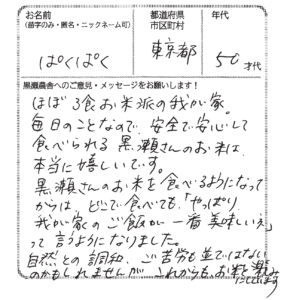 お名前
(苗字のみ・匿名・ニックネーム可)
都道府県
市区町村
年代
ぱくぱく
東京都
50才代
黒瀬農舎へのご意見・メッセージをお願いします!
ほぼ3食お米派の我が家。
毎日のことなので、安全で安心して
食べられる黒瀬さんのお米は、
本当に嬉しいです。
黒瀬さんのお米を食べるようになって
からは、どこで食べても、「やっぱり
我が家のご飯が一番美味しいネ」
って言うようになりました。
自然との調和、ご苦労も並ではない
のかもしれませんが これからもお米を楽しみ
にしています